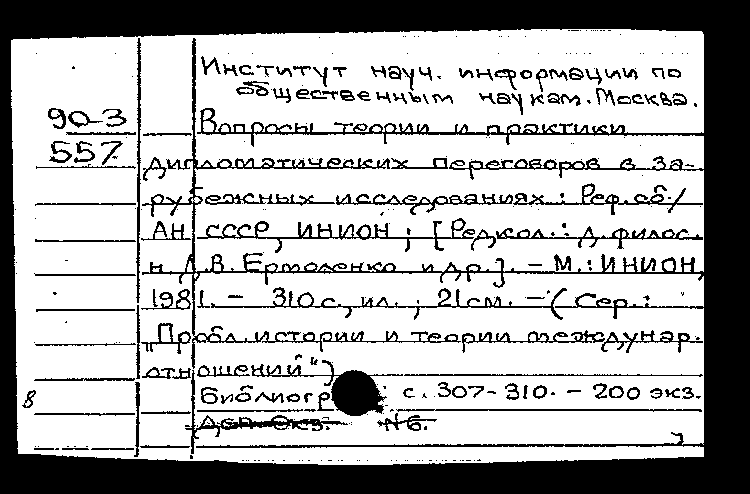 Институт науч. информации по
общественным наукам. Москва.
90-3
Вопросы теории и практики
557
дипломатических переговоров в за-
рубежных исследованиях: Реф. сб./
АН СССР, ИНИОН; [Редкол.: д. филос.
н. Д.В. Ермоленко и др.]. – М.: ИНИОН,
1981. – 310 с., ил.; 21 см. – (Сер.:
"Пробл. истории и теории междунар.
отношений")
Библиогр с. 307-310. – 200 экз.
8
Доп. экз. № 6.